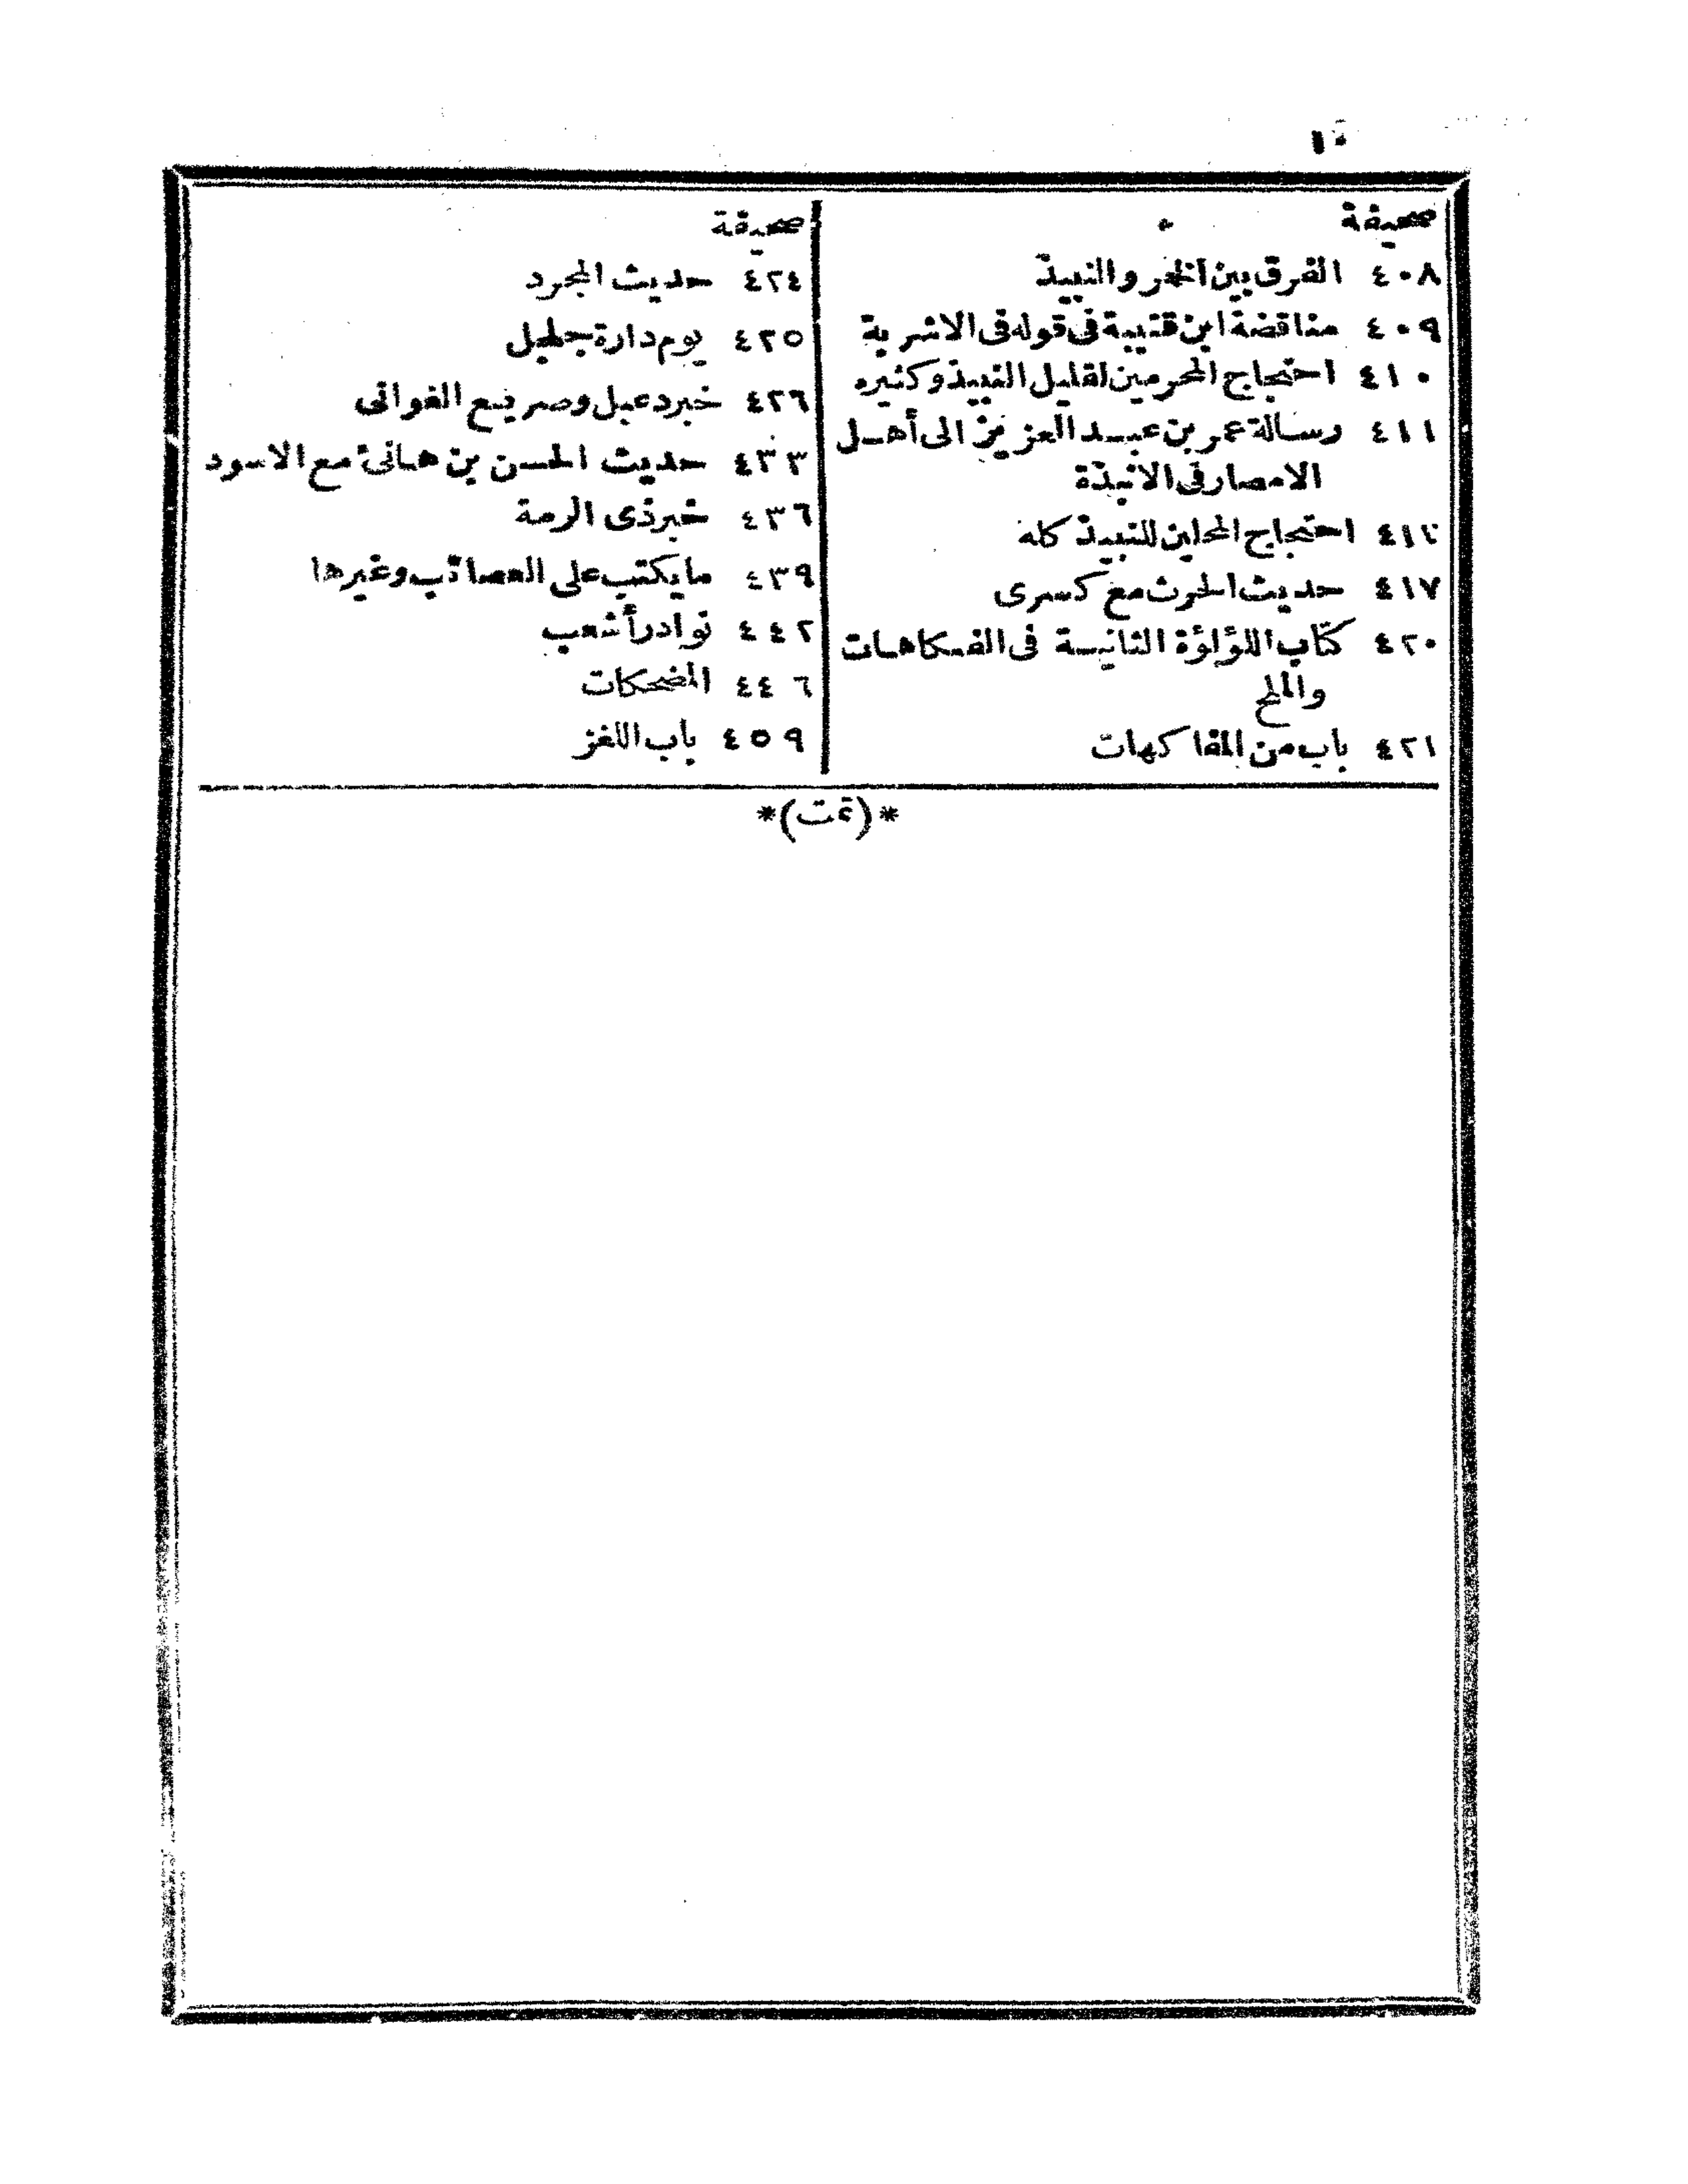 ١٠
صحيفة
٤٠٨ الفرق بين الخمر والنبيذ
٤٠٩ مناقضة ابن قتيبة فى قوله فى الاشربة
٤١٠ احتجاج المحرمين لقليل النبيذ وكثيره
٤١١ رسالة عمر بن عبد العزيز الى أهل
الامصار فى الانبذة
احتجاج المحلين للنبيذ كله
٤١٧ حديث الحرث مع كسرى
٤٢٠ كتاب اللؤلؤة الثانية فى الفكاهات
والملح
٤٢١ باب من المفاكهات
صحيفة
٤٢٤ حديث المجرد
٤٢٥ يوم دارة جلجل
٤٢٦ خبر دعبل وصريع الغوانى
٤٣٣ حديث الحسن بن هانئ مع الاسود
٤٣٦ خبر ذى الرمة
٤٣٩ ما يكتب على العصائب وغيرها
٤٤٢ نوادر أشعب
٤٤٦ المضحكات
٤٥٩ باب اللغز
*(تمت)*